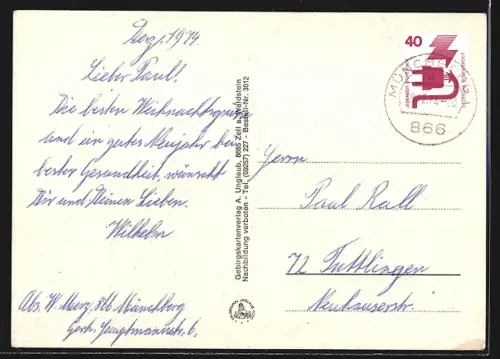 Dez. 1974.
Lieber Paul!
Die besten Weihnachtsgrüsse
und ein gutes Neujahr bei
bester Gesundheit, wünscht
Dir und Deinen Lieben.
Wilhelm
Abs. W. Merz, 866 Münchberg
Gerh. Hauptmannstr. 6,
Gebirgskartenverlag A. Unglaub, 8665 Zell a. Waldstein
Nachbildung verboten - Tel. (09257) 227 - Bestell-Nr. 3012
40
MÜNCHBERG
866
Herrn
Paul Rall
72 Tuttlingen
Neuhauserstr.